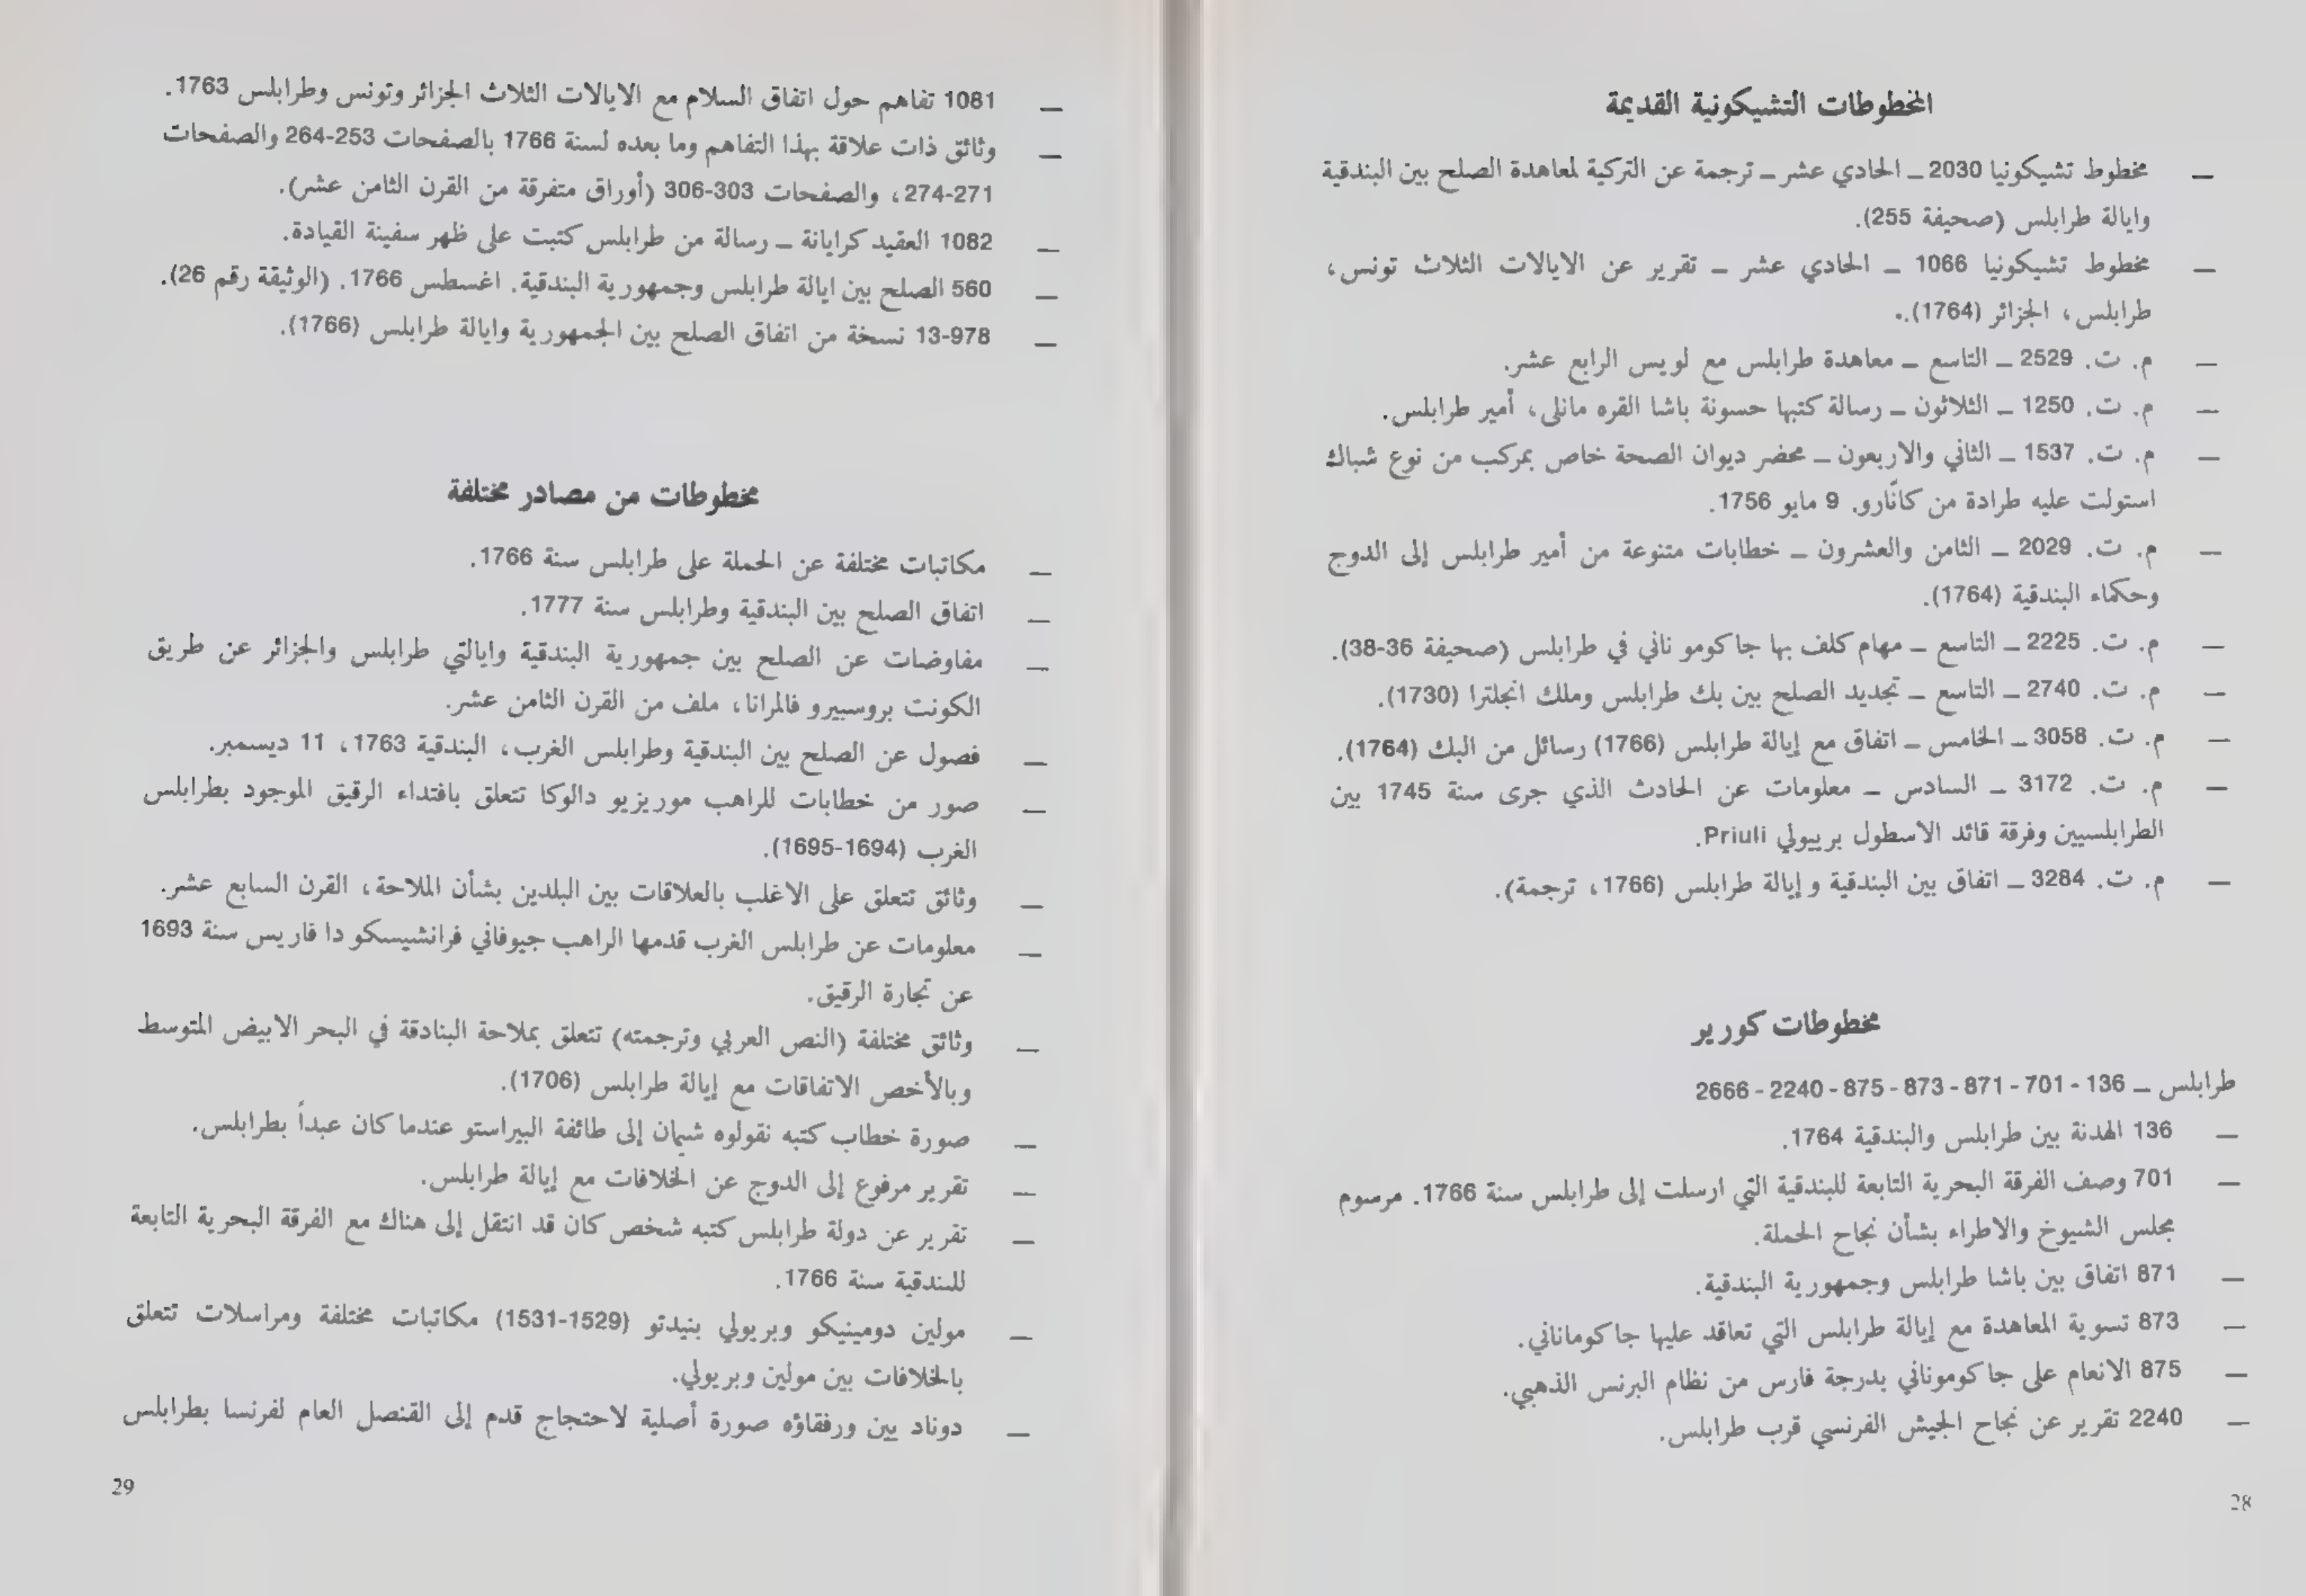 المخطوطات التشيكونية القديمة
— مخطوط تشيكونيا 2030 – الحادي عشر – ترجمة عن التركية لمعاهدة الصلح بين البندقية
وايالة طرابلس (صحيفة 255).
— مخطوط تشيكونيا 1066 – الحادي عشر – تقرير عن الايالات الثلاث تونس،
طرابلس، الجزائر (1764).
— م. ت. 2529 – التاسع – معاهدة طرابلس مع لويس الرابع عشر.
— م. ت. 1250 – الثلاثون – رسالة كتبها حسونة باشا القره مانلى، أمير طرابلس.
— م. ت. 1537 – الثاني والاربعون – محضر ديوان الصحة خاص بمركب من نوع شباك
استولت عليه طرادة من كانّارو. 9 مايو 1756.
— م. ت. 2029 – الثامن والعشرون – خطابات متنوعة من أمير طرابلس إلى الدوج
وحكماء البندقية (1764).
— م. ت. 2225 – التاسع – مهام كلف بها جاكومو ناني في طرابلس (صحيفة 36-38).
— م. ت. 2740 – التاسع – تجديد الصلح بين بك طرابلس وملك انجلترا (1730).
— م. ت. 3058 – الخامس – اتفاق مع إيالة طرابلس (1766) رسائل من البك (1764).
— م. ت. 3172 – السادس – معلومات عن الحادث الذي جرى سنة 1745 بين
الطرابلسيين وفرقة قائد الاسطول برييولي Priuli.
— م. ت. 3284 – اتفاق بين البندقية وإيالة طرابلس (1766، ترجمة).
مخطوطات كورير
طرابلس – 136 - 701 - 871 - 873 - 875 - 2240 - 2666
— 136 الهدنة بين طرابلس والبندقية 1764.
— 701 وصف الفرقة البحرية التابعة للبندقية التي ارسلت إلى طرابلس سنة 1766. مرسوم
مجلس الشيوخ والاطراء بشأن نجاح الحملة.
— 871 اتفاق بين باشا طرابلس وجمهورية البندقية.
— 873 تسوية المعاهدة مع إيالة طرابلس التي تعاقد عليها جاكوماناني.
— 875 الانعام على جاكوموناني بدرجة فارس من نظام البرنس الذهبي.
— 2240 تقرير عن نجاح الجيش الفرنسي قرب طرابلس.
28
— 1081 تفاهم حول اتفاق السلام مع الايالات الثلاث الجزائر وتونس وطرابلس 1763.
— وثائق ذات علاقة بهذا التفاهم وما بعده لسنة 1766 بالصفحات 253-264 والصفحات
271-274، والصفحات 303-306 (أوراق متفرقة من القرن الثامن عشر).
— 1082 العقيد كرايانة – رسالة من طرابلس كتبت على ظهر سفينة القيادة.
— 560 الصلح بين ايالة طرابلس وجمهورية البندقية. اغسطس 1766. (الوثيقة رقم 26).
— 978-13 نسخة من اتفاق الصلح بين الجمهورية وايالة طرابلس (1766).
مخطوطات من مصادر مختلفة
— مكاتبات مختلفة عن الحملة على طرابلس سنة 1766.
— اتفاق الصلح بين البندقية وطرابلس سنة 1777.
— مفاوضات عن الصلح بين جمهورية البندقية وايالتي طرابلس والجزائر عن طريق
الكونت بروسبيرو فالمرانا، ملف من القرن الثامن عشر.
— فصول عن الصلح بين البندقية وطرابلس الغرب، البندقية 1763، 11 ديسمبر.
— صور من خطابات للراهب موريزيو دالوكا تتعلق بافتداء الرقيق الموجود بطرابلس
الغرب (1694-1695).
— وثائق تتعلق على الاغلب بالعلاقات بين البلدين بشأن الملاحة، القرن السابع عشر.
— معلومات عن طرابلس الغرب قدمها الراهب جيوفاني فرانشيسكو دا قاريس سنة 1693
عن تجارة الرقيق.
— وثائق مختلفة (النص العربي وترجمته) تتعلق بملاحة البنادقة في البحر الابيض المتوسط
وبالأخص الاتفاقات مع إيالة طرابلس (1706).
— صورة خطاب كتبه نقولوه شيمان إلى طائفة البيراستو عندما كان عبداً بطرابلس.
— تقرير مرفوع إلى الدوج عن الخلافات مع إيالة طرابلس.
— تقرير عن دولة طرابلس كتبه شخص كان قد انتقل إلى هناك مع الفرقة البحرية التابعة
للبندقية سنة 1766.
— مولين دومينيكو وبريولي بنيدتو (1529-1531) مكاتبات مختلفة ومراسلات تتعلق
بالخلافات بين مولين وبريولي.
— دوناد بين ورفقاؤه صورة أصلية لاحتجاج قدم إلى القنصل العام لفرنسا بطرابلس
29